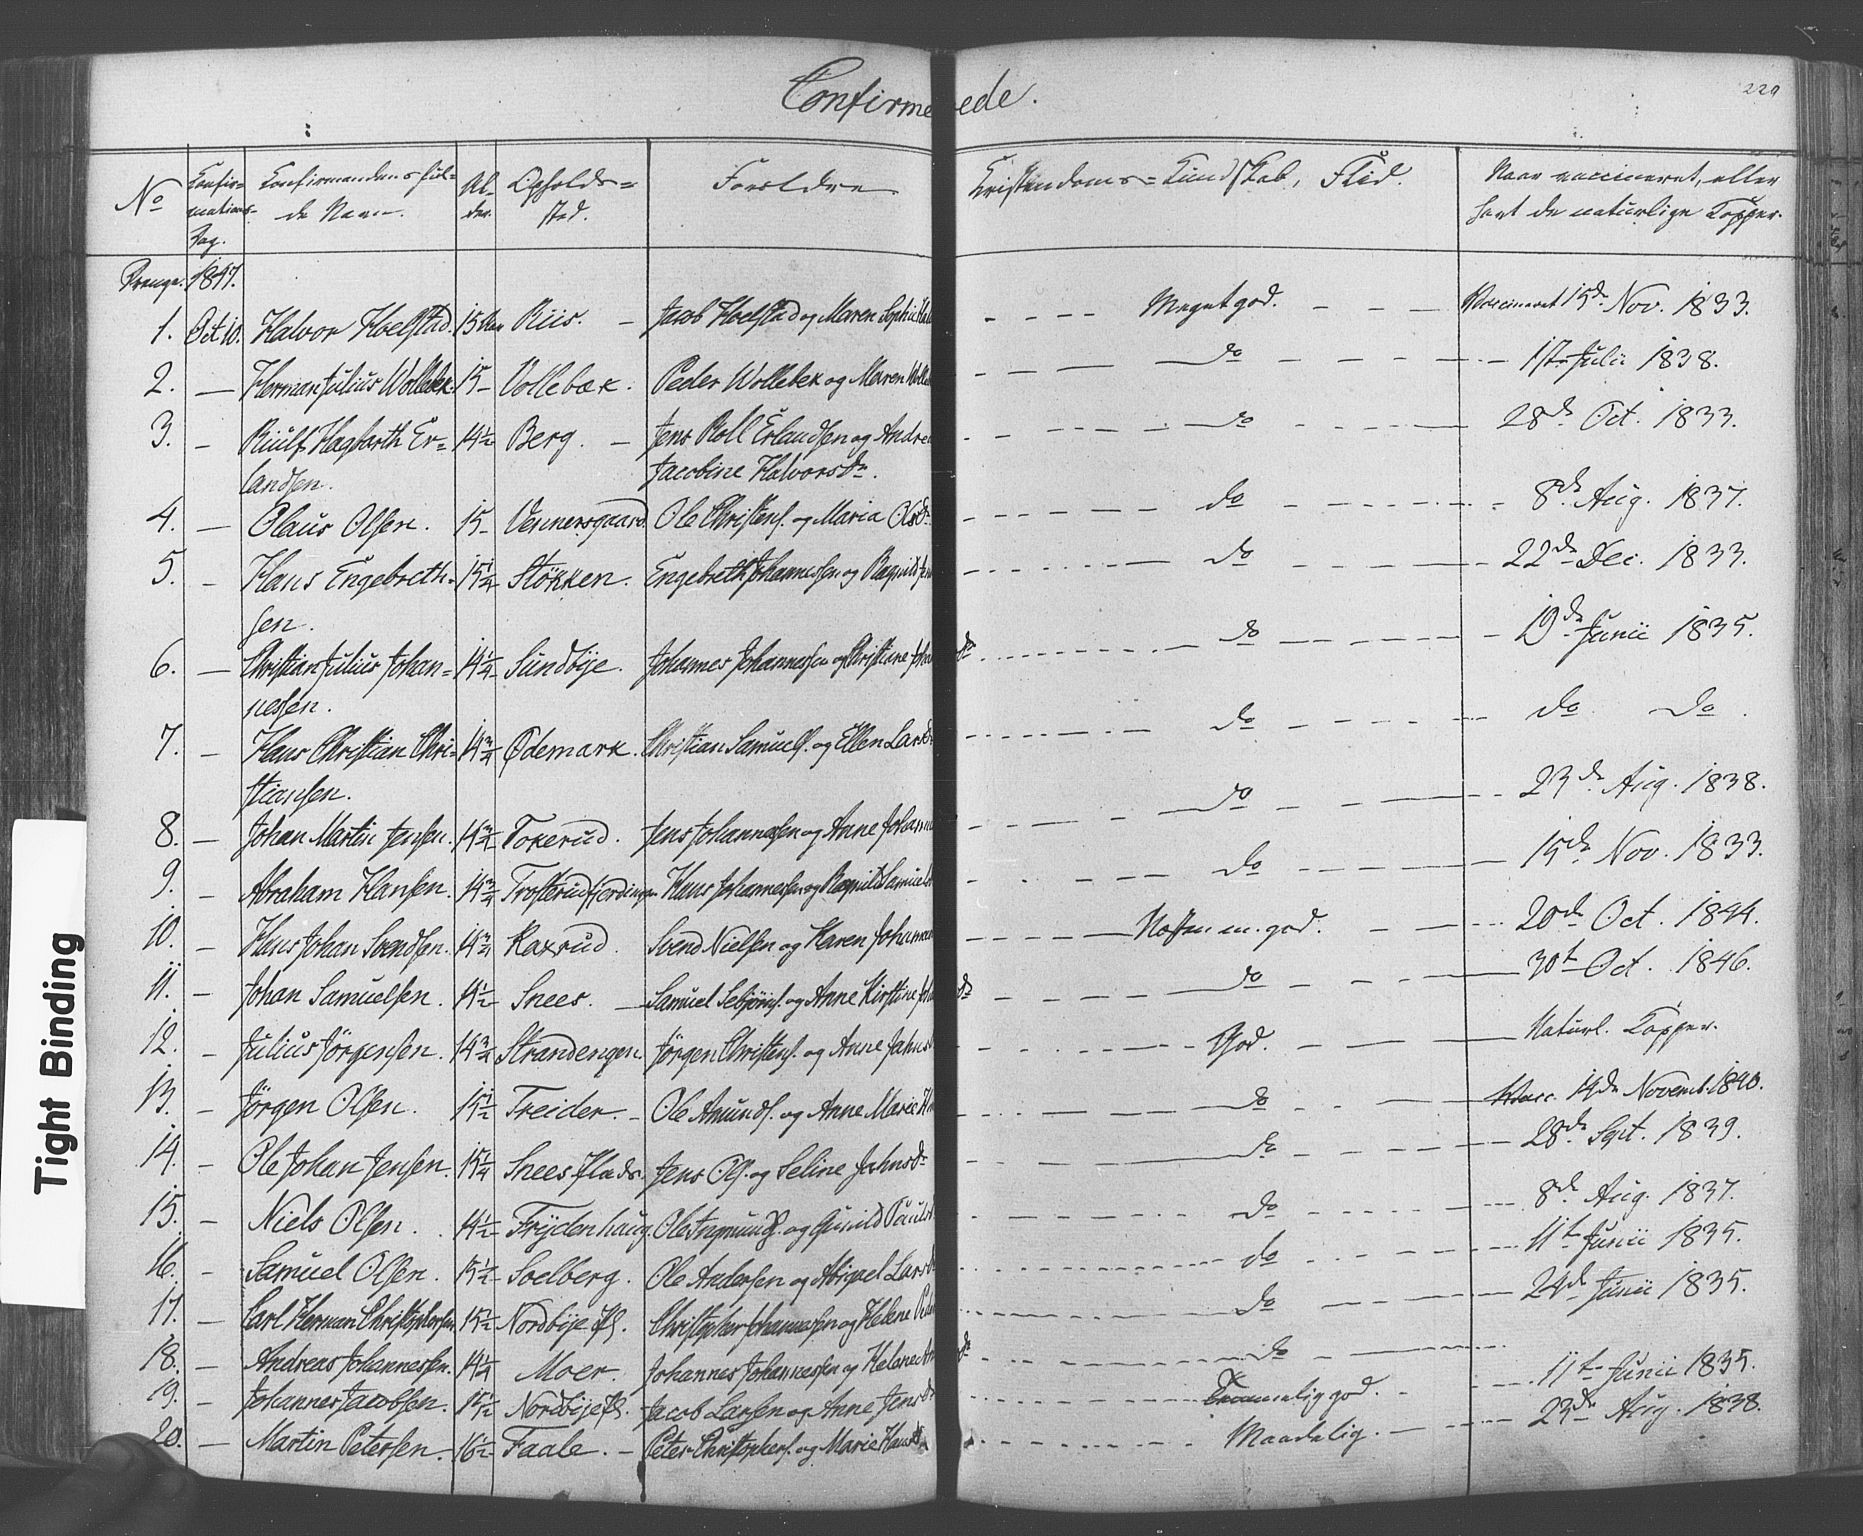 Confirmerede.
229
No
Confir-
mations-
Dag.
Confirmandens ful-
de Navn.
Al-
der.
Opholds-
sted.
Forældre
Kristendoms-Kundskab, Flid.
Naar vaccineret, eller
havt de naturlige Kopper.
Drenge. 1847.
1. Oct 10. Halvor Hoelstad. 15 Aar Riis. – Jacob Hoelstad og Maren Sophie Meget god. Vaccineret 15de Nov. 1833.
2. — Herman Julius Wollebek. 15 – Vollebæk. Peder Wollebek og Maren do 1ste Julii 1838.
3. – Riulf Hagbarth Er- 14½ Berg. – Jens Roll Erlandsen og do 28de Oct. 1833.
landsen. Jacobine Halvorsdr.
4. — Olaus Olsen. 15 – Vennersgaard Ole Christens. og Maria Olsdr do 8de Aug. 1837.
5. – Hans Engebreth- 15¼ Stökken. Engebreth Johannessen og Ragnild do 22de Dec. 1833.
sen.
6. — Christian Julius Johan- 14¼ Sundbÿe. Johannes Johannessen og Christine dr do 19de Junii 1835.
nessen.
7. – Hans Christian Chri- 14¾ Ødemark. Christian Samuels. og Ellen Larsd do do do.
stiansen.
8. — Johan Martin Jensen. 14¾ Tokerud. Jens Johannesen og Anne do 23de Aug. 1838.
9. – Abraham Hansen. 14¾ Trosterudfjerdingen Hans Johannessen og Ragnild do 15de Nov. 1833.
10. – Hans Johan Svendsen. 14¾ Kaxrud. Svend Nielsen og Karen Næsten m. god. 20de Oct. 1844.
11. – Johan Samuelsen. 14½ Snees. – Samuel Sebjörns. og Anne Kirstine dr do 30t Oct. 1846.
12. – Julius Jörgensen. 14¾ Strandengen. Jörgen Christens. og Anne God. Naturl. Kopper.
13. – Jörgen Olsen. 15½ Treider – Ole Amunds. og Anne Marie do Vacc. 14de Novemb. 1840.
14. – Ole Johan Jensen. 15¼ Snees Plads. Jens Ols. og Seline Jahnsdr do 28de Sept. 1839.
15. – Niels Olsen. 14½ Frÿdenhaug. Ole Ingmunds. og Gunild do 8de Aug. 1837.
16. – Samuel Olsen. 15½ Soelberg. Ole Andersen og Abigael Larsd do 11te Junii 1835.
17. – Carl Herman Christophersen 15½ Nordbÿe Pl. Christopher Johannesen og Helene do 24de Junii 1835.
18. – Andreas Johannessen. 14¼ Moer. Johannes Johannessen og Helene dr do
19. – Johannes Jacobsen. 15½ Nordbÿe Pl. Jacob Larsen og Anne Jensdr Temmelig god. 11te Junii 1835.
20. – Martin Petersen. 16½ Faale. – Peter Christophers. og Marie Maadelig. 23de Aug. 1838.
Tight Binding